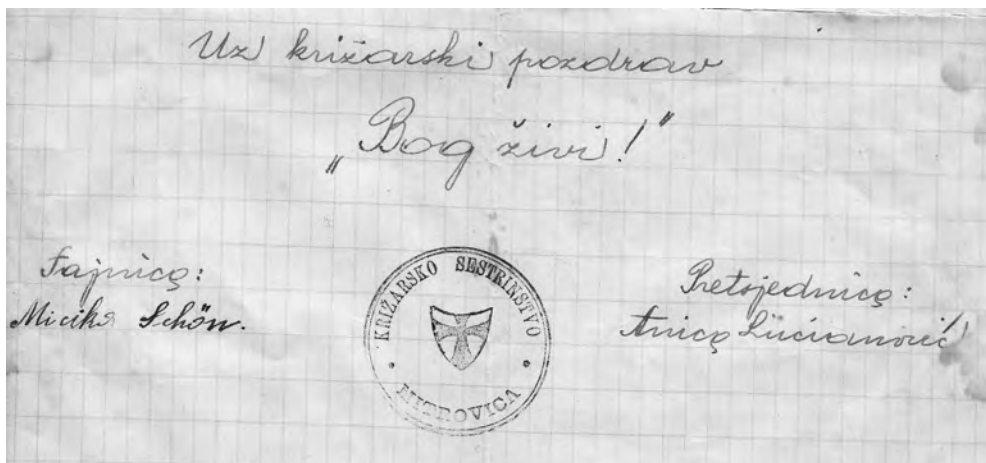 Uz križarski pozdrav
„Bog živi!"
Tajnica:
Micika Schön.
KRIŽARSKO SESTRINSTVO
• MITROVICA •
Pretsjednica:
Anica